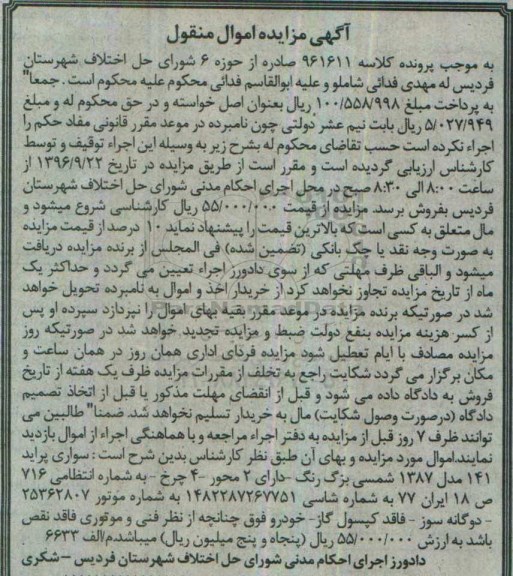 آگهی مزایده اموال منقول
به موجب پرونده کلاسه ۹۶۱۶۱۱ صادره از حوزه ۶ شورای حل اختلاف شهرستان
فردیس له مهدی فدائی شاملو و علیه ابوالقاسم فدائی محکوم علیه محکوم است . جمعا"
به پرداخت مبلغ ۱۰۰/۵۵۸/۹۹۸ ریال بعنوان اصل خواسته و در حق محکوم له و مبلغ
۵/۰۲۷/۹۴۹ ریال بابت نیم عشر دولتی چون نامبرده در موعد مقرر قانونی مفاد حکم را
اجرا نکرده است حسب تقاضای محکوم له بشرح زیر به وسیله این اجراء توقیف و توسط
کارشناس ارزیابی گردیده است و مقرر است از طریق مزایده در تاریخ ۱۳۹۶/۹/۲۲ از
ساعت ۸:۰۰ الی ۸:۳۰ صبح در محل اجرای احکام مدنی شورای حل اختلاف شهرستان
فردیس بفروش برسد. مزایده از قیمت ۵۵/۰۰۰/۰۰۰ ریال کارشناسی شروع میشود و
مال متعلق به کسی است که بالاترین قیمت را پیشنهاد نماید ۱۰ درصد از قیمت مزایده
به صورت وجه نقد یا چک بانکی (تضمین شده) فی المجلس از برنده مزایده دریافت
میشود و الباقی ظرف مهلتی که از سوی دادورز اجراء تعیین می گردد و حداکثر یک
ماه از تاریخ مزایده تجاوز نخواهد کرد از خریدار اخذ و اموال به نامبرده تحویل خواهد
شد در صورتیکه برنده مزایده در موعد مقرر بقیه بهای اموال را نپردازد سپرده او پس
از کسر هزینه مزایده بنفع دولت ضبط و مزایده تجدید خواهد شد در صورتیکه روز
مزایده مصادف با ایام تعطیل شود مزایده فردای اداری همان روز در همان ساعت و
مکان برگزار می گردد شکایت راجع به تخلف از مقررات مزایده ظرف یک هفته از تاریخ
فروش به دادگاه داده می شود و قبل از انقضای مهلت مذکور یا قبل از اتخاذ تصمیم
دادگاه (درصورت وصول شکایت) مال به خریدار تسلیم نخواهد شد. ضمنا" طالبین می
توانند ظرف ۷ روز قبل از مزایده به دفتر اجراء مراجعه و با هماهنگی اجراء از اموال بازدید
نمایند.اموال مورد مزایده و بهای آن طبق نظر کارشناس بدین شرح است : سواری پراید
۱۴۱ مدل ۱۳۸۷ شمسی بژگ رنگ -دارای ۲ محور -۴ چرخ - به شماره انتظامی ۷۱۶
ص ۱۸ ایران ۷۷ به شماره شاسی ۱۴۸۲۲۸۷۲۶۷۷۵۱ به شماره موتور ۲۵۳۶۲۸۰۷
- دوگانه سوز - فاقد کپسول گاز- خودرو فوق چنانچه از نظر فنی و موتوری فاقد نقص
باشد به ارزش ۵۵/۰۰۰/۰۰۰ ریال (پنجاه و پنج میلیون ریال) میباشد.م/الف ۶۶۳۳
دادورز اجرای احکام مدنی شورای حل اختلاف شهرستان فردیس -شکری